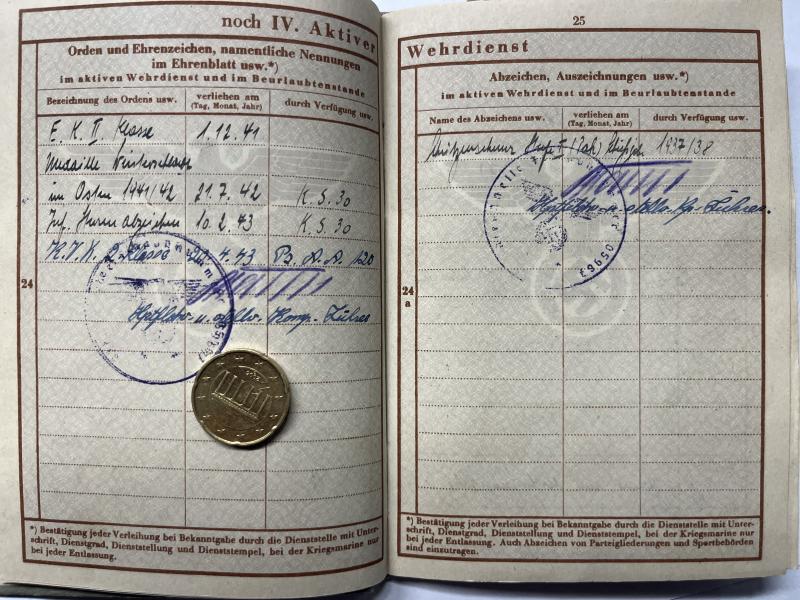 noch IV. Aktiver
Orden und Ehrenzeichen, namentliche Nennungen
im Ehrenblatt usw.*)
im aktiven Wehrdienst und im Beurlaubtenstande
Bezeichnung des Ordens usw.
verliehen am
(Tag, Monat, Jahr)
durch Verfügung usw.
E. K. II. Klasse 1.12.41
Medaille
im Osten 1941/42 21.7.42 K.S. 30
Inf. Sturmabzeichen 10.2.43 K.S. 30
2. Klasse 4.43 120
24
*) Bestätigung jeder Verleihung bei Bekanntgabe durch die Dienststelle mit Unter-
schrift, Dienstgrad, Dienststellung und Dienststempel, bei der Kriegsmarine nur
bei jeder Entlassung.
25
Wehrdienst
Abzeichen, Auszeichnungen usw.*)
im aktiven Wehrdienst und im Beurlaubtenstande
Name des Abzeichens usw.
verliehen am
(Tag, Monat, Jahr)
durch Verfügung usw.
1937/38
05967
24
a
*) Bestätigung jeder Verleihung bei Bekanntgabe durch die Dienststelle mit Unter-
schrift, Dienstgrad, Dienststellung und Dienststempel, bei der Kriegsmarine nur
bei jeder Entlassung. Auch Abzeichen von Parteigliederungen und Sportbehörden
sind einzutragen.